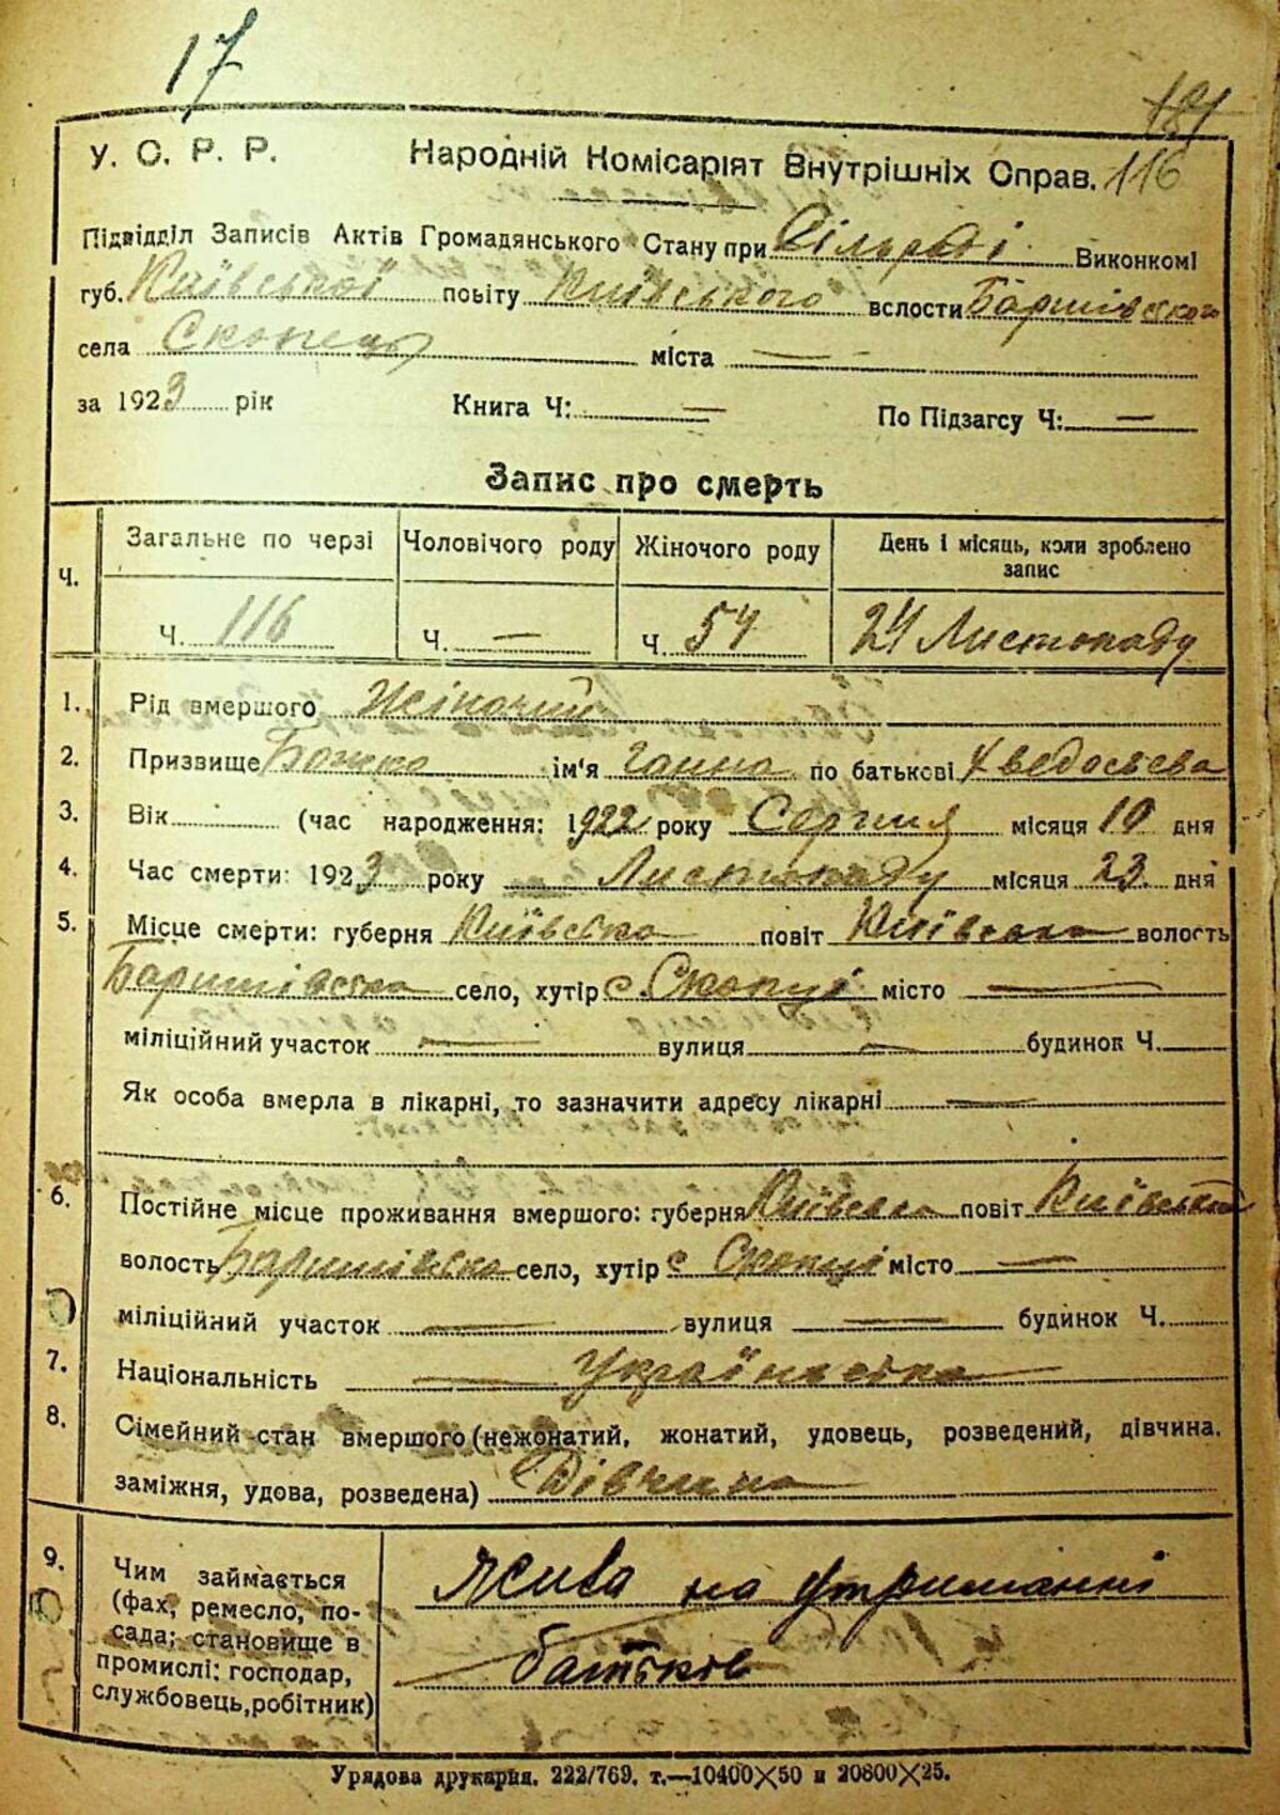 17
181
У. С. Р. Р. Народній Комісаріят Внутрішніх Справ. 116
Підвідділ Записів Актів Громадянського Стану при Сільраді Виконкомі
губ. Київської повіту Київського вслости Баршівского
села Скопець міста —
за 1923 рік Книга Ч: — По Підзагсу Ч: —
Запис про смерть
Ч. Загальне по черзі Чоловічого роду Жіночого роду День і місяць, коли зроблено запис
Ч. 116 Ч. — Ч. 54 24 Листопаду
1. Рід вмершого Жіночий
2. Призвище Божко ім'я Ганна по батькові Хведосьєва
3. Вік (час народження: 1922 року Серпня місяця 10 дня
4. Час смерти: 1923 року Листопаду місяця 23 дня
5. Місце смерти: губерня Київська повіт Київська волость
Баришівська село, хутір с. Скопці місто —
міліційний участок — вулиця — будинок Ч.
Як особа вмерла в лікарні, то зазначити адресу лікарні —
6. Постійне місце проживання вмершого: губерня Київська повіт Київський
волость Баришівська село, хутір с Скопці місто —
міліційний участок — вулиця — будинок Ч.
7. Національність — Українська
8. Сімейний стан вмершого (нежонатий, жонатий, удовець, розведений, дівчина,
заміжня, удова, розведена) Дівчина
9. Чим займається
(фах, ремесло, по-
сада; становище в
промислі: господар,
службовець, робітник)
жива на утриманні
батьків
Урядова друкарня. 222/769. т.—10400×50 и 20800×25.